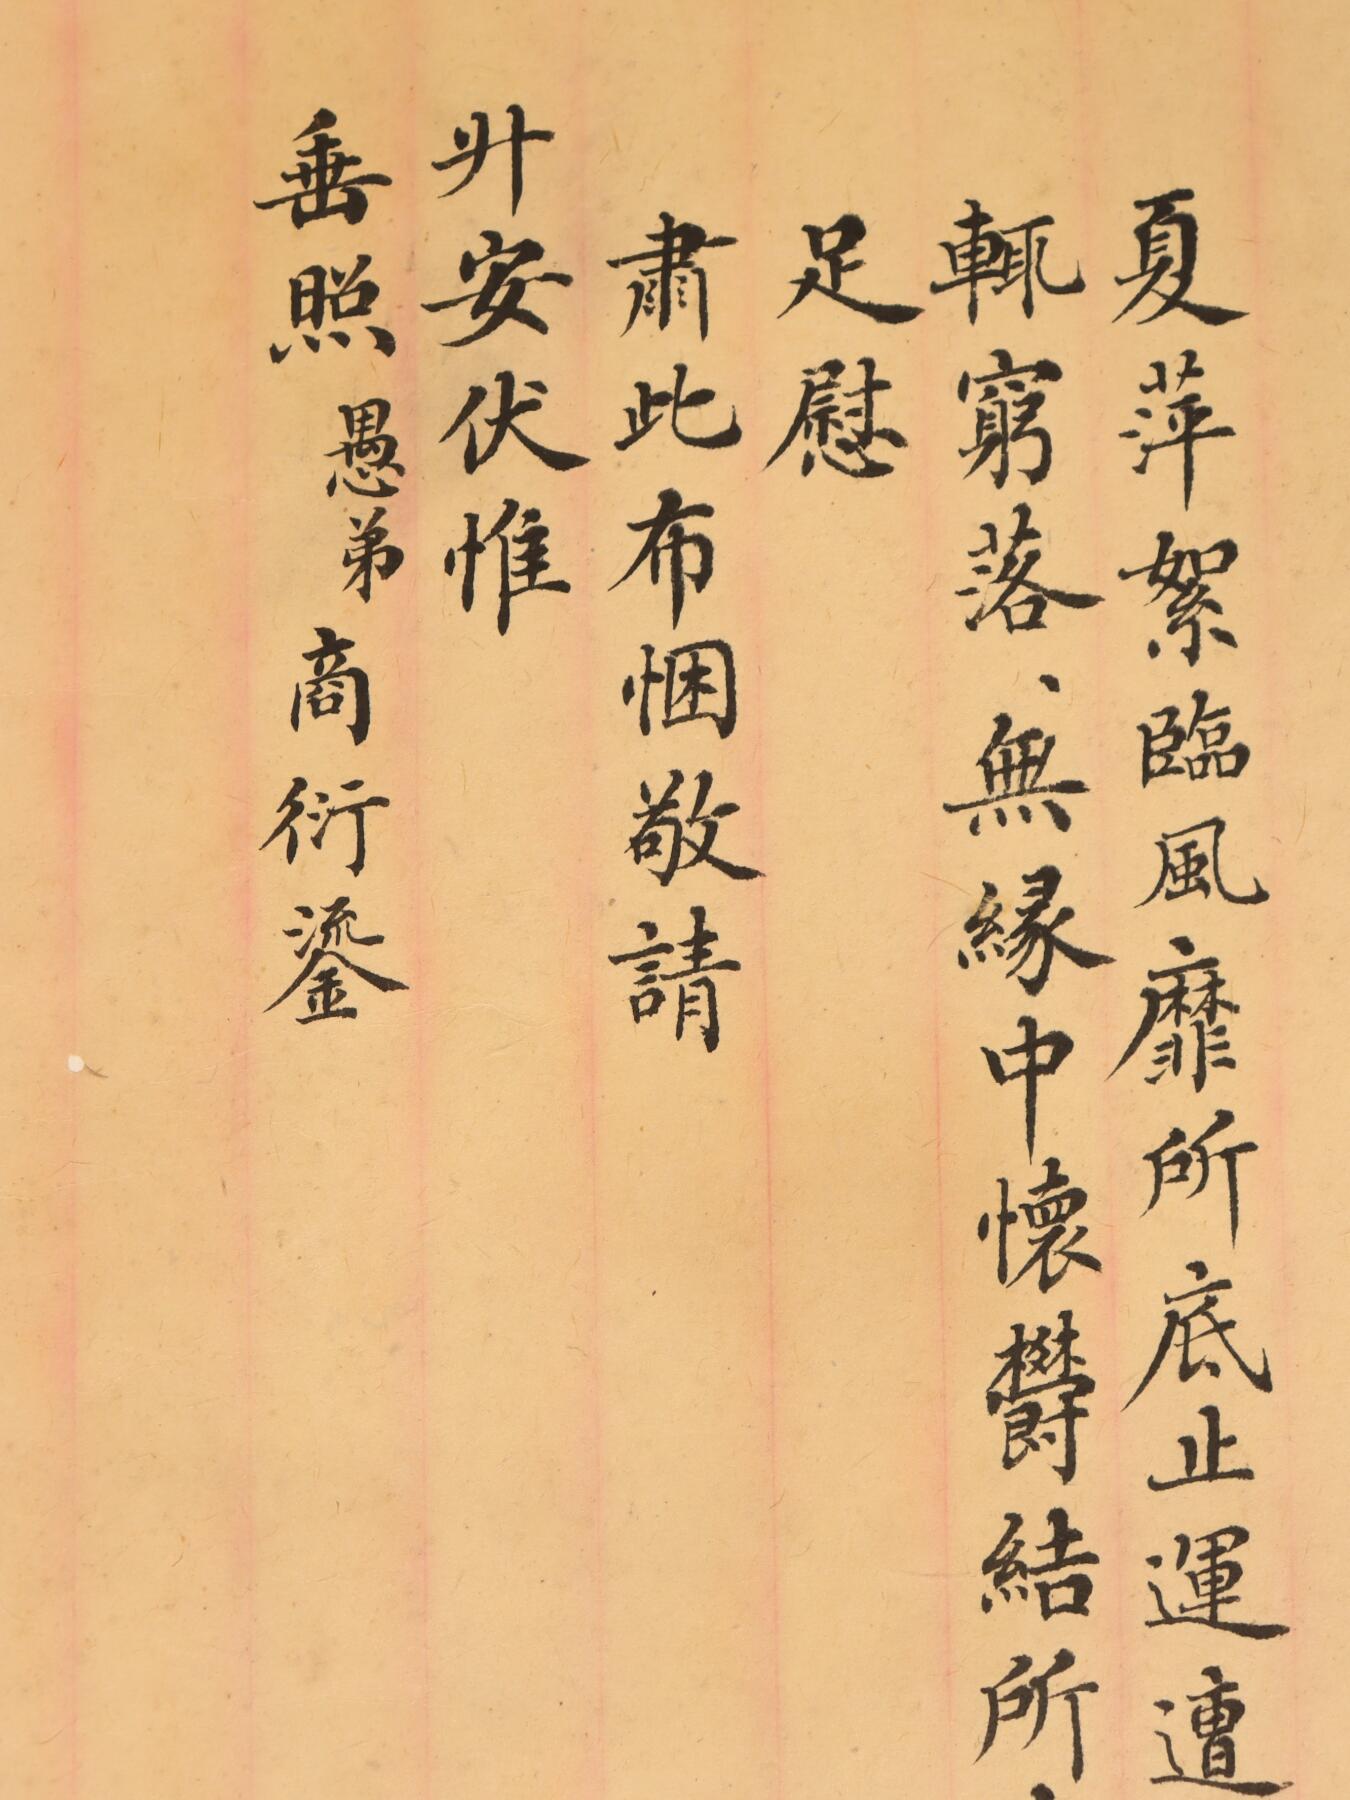 夏萍絮臨風靡所底止運遭
輒窮落、無緣中懷欝結所
足慰
肅此布悃敬請
升安伏惟
垂照愚弟商衍鎏